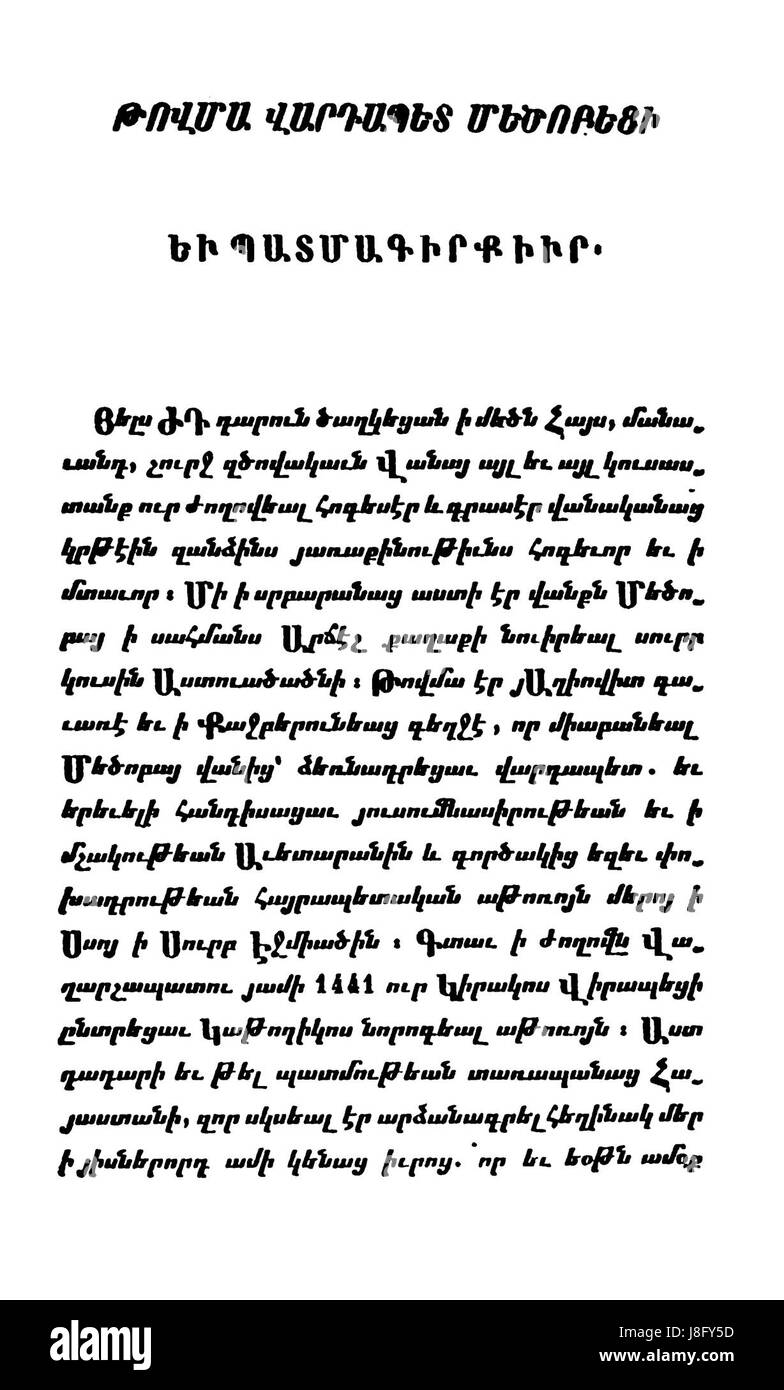 ԹՈՎՄԱ ՎԱՐԴԱՊԵՏ ՄԵԾՈԲԵՑԻ
ԵՒ ՊԱՏՄԱԳԻՐՔ ԻՒՐ.
Յելս ԺԴ դարուն ծաղկեցան ի մեծն Հայս, մանա֊
ւանդ, շուրջ զծովակաւն Վանայ այլ եւ այլ կուսաս֊
տանք ուր ժողովեալ հոգեսէր և գրասէր վանականաց
կրթէին զանձինս յառաքինութիւնս հոգեւոր եւ ի
մտաւոր ։ Մի ի սրբարանաց աստի էր վանքն Մեծո֊
բայ ի սահմանս Արճէշ քաղաքի նուիրեալ սուրբ
կուսին Աստուածածնի ։ Թովմա էր յԱղիովիտ գա֊
ւառէ եւ ի Քաջբերունեաց գեղջէ, որ միաբանեալ
Մեծոբայ վանից՝ ձեռնադրեցաւ վարդապետ. եւ
երեւելի հանդիսացաւ յուսումնասիրութեան եւ ի
մշակութեան Աւետարանին և գործակից եզեւ փո֊
խադրութեան Հայրապետական աթոռոյն մերոյ ի
Սսոյ ի Սուրբ Էջմիածին ։ Գտաւ ի ժողովն Վա֊
ղարշապատու յամի 1441 ուր Կիրակոս Վիրապեցի
ընտրեցաւ Կաթողիկոս նորոգեալ աթոռոյն ։ Աստ
դադարի եւ թել պատմութեան տառապանաց Հա֊
յաստանի, զոր սկսեալ էր արձանագրել հեղինակ մեր
ի յիսներորդ ամի կենաց իւրոյ. որ եւ եօթն ամօք
alamy
Image ID: J8FY5D
www.alamy.com